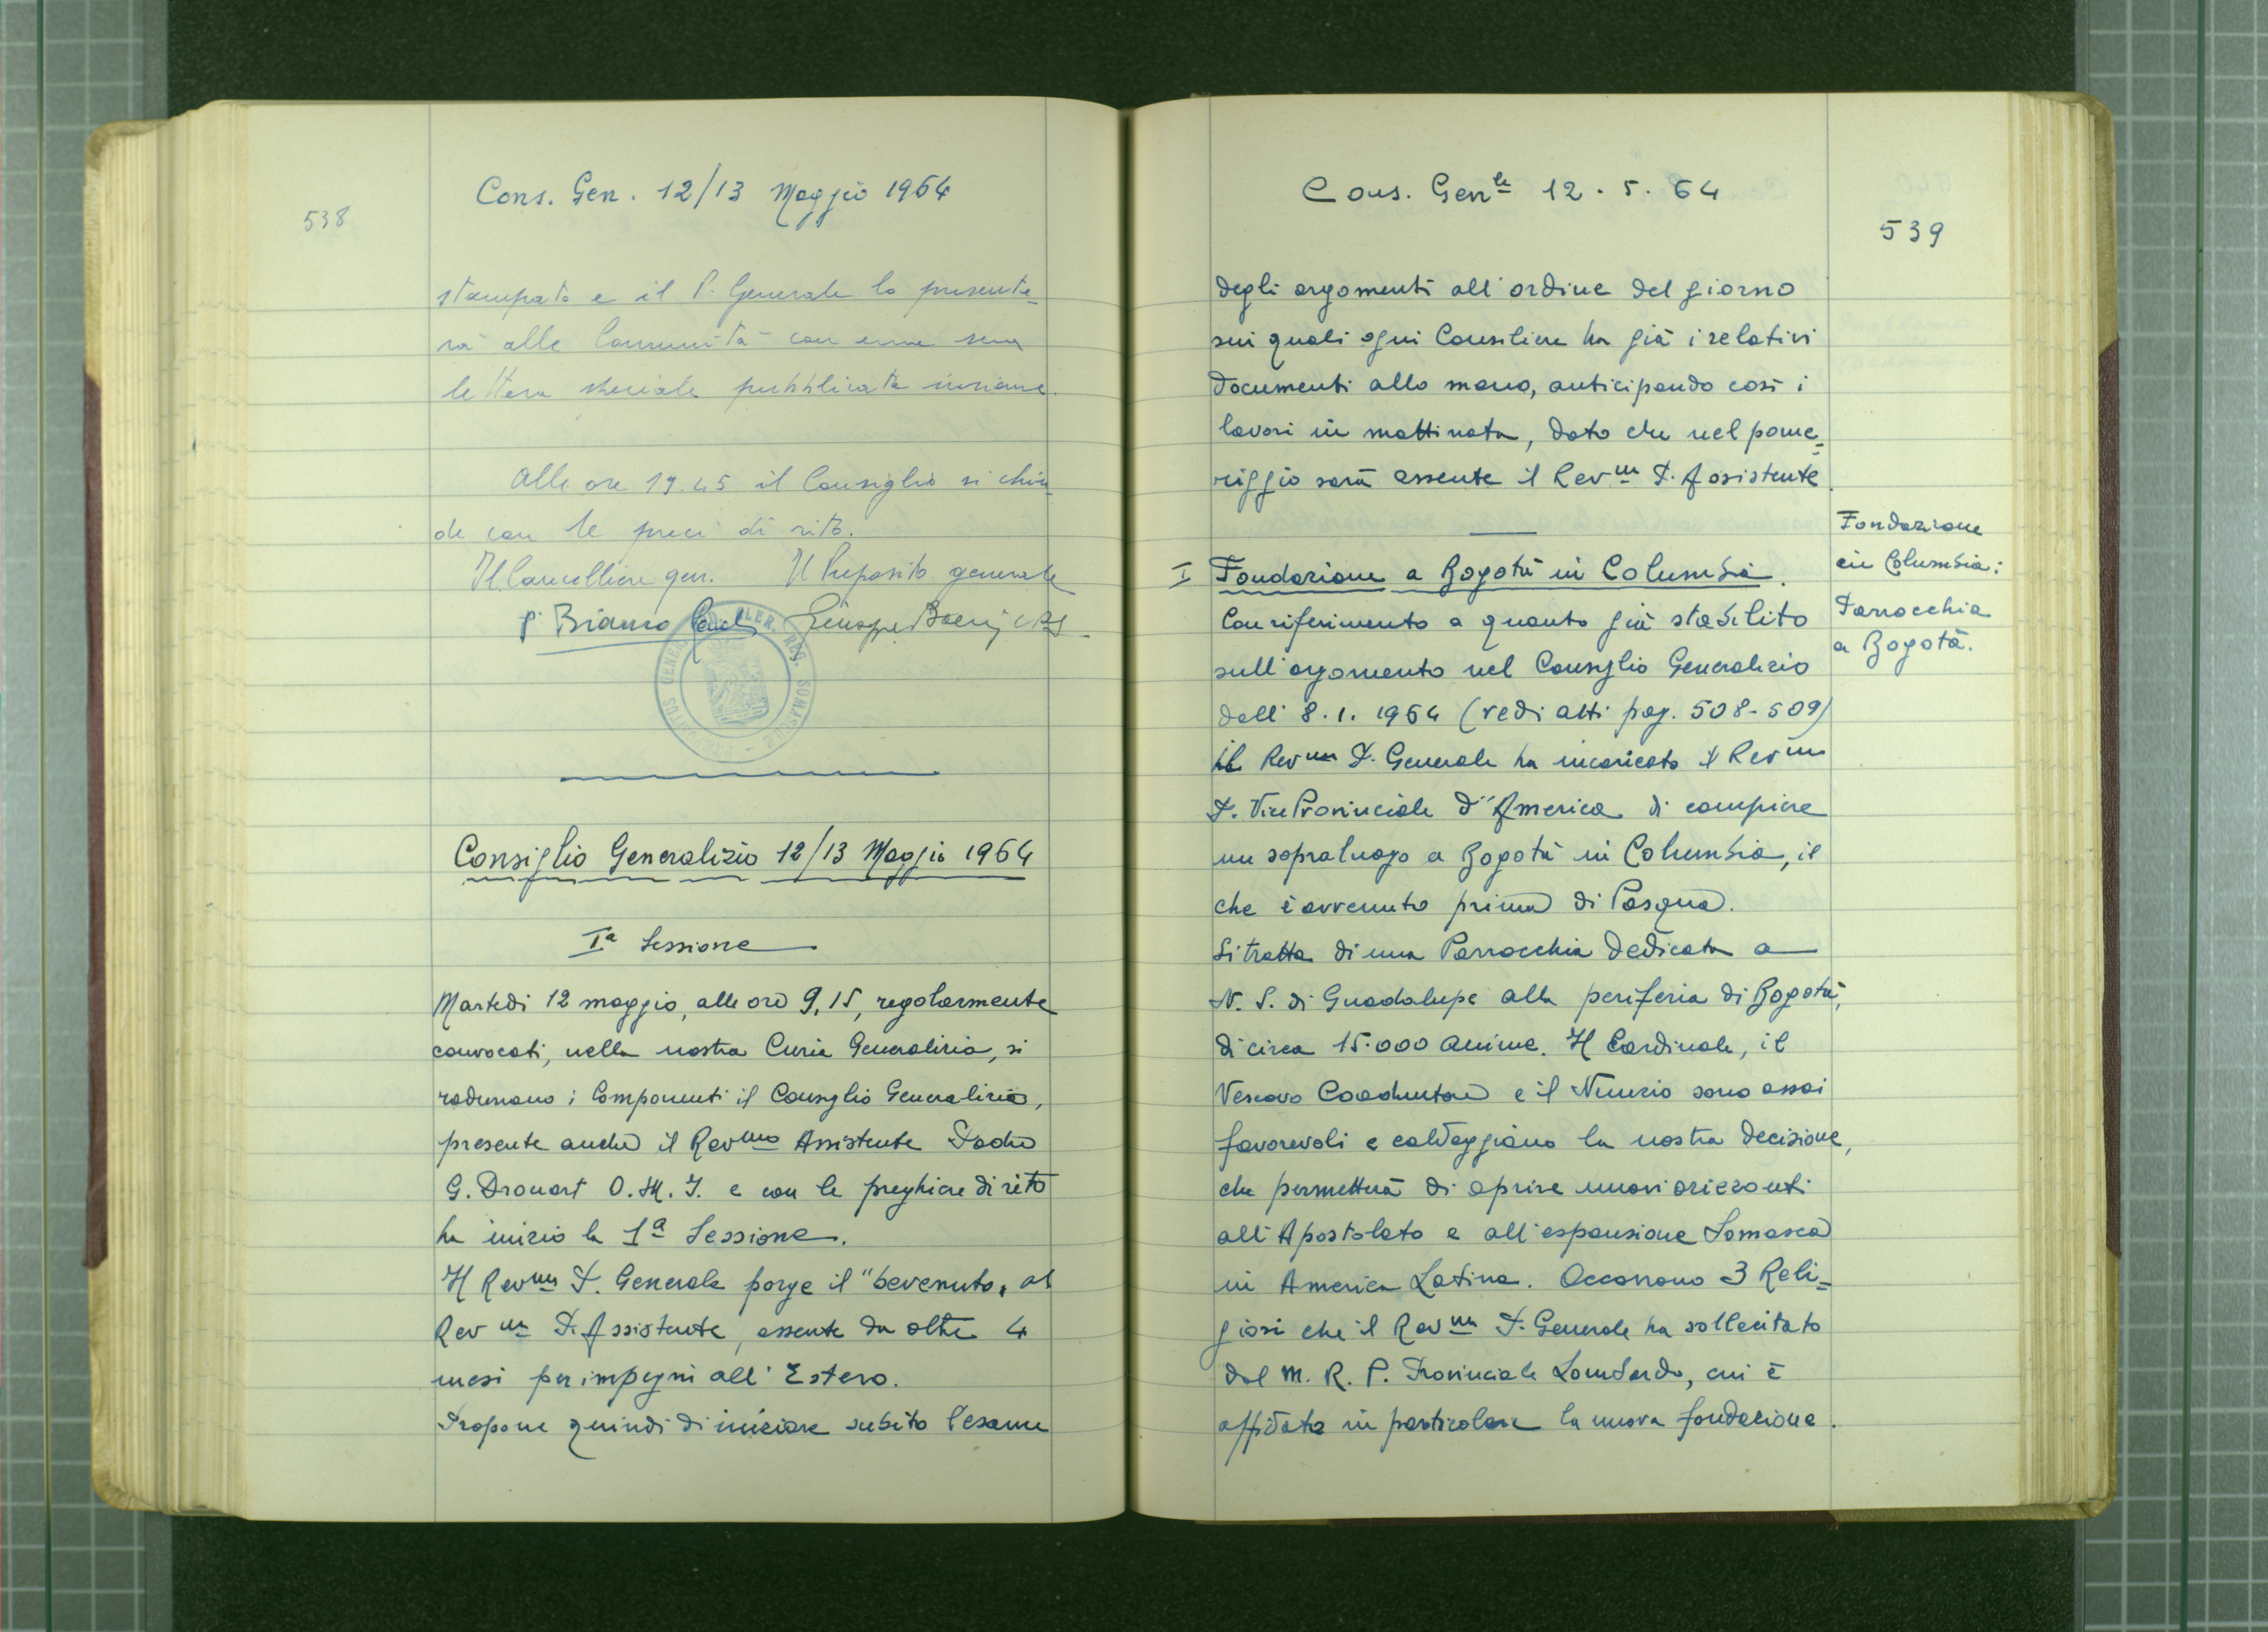 Cons. Gen. 12/13 Maggio 1964
538
stampato e il P. Generale lo presente=
rà alle Comunità con una sua
lettera speciale pubblicata insieme.
Alle ore 19.45 il Consiglio si chiu=
de con le preci di rito.
Il Cancelliere gen. Il Preposito generale
P. Bianco Giuseppe Boeris crs
Consiglio Generalizio 12/13 Maggio 1964
Iª Sessione
Martedì 12 maggio, alle ore 9,15, regolarmente
convocati, nella nostra Curia Generalizia, si
radunano i Componenti il Consiglio Generalizio,
presente anche il Revmo Assistente Padre
G. Drouart O.M.I. e con le preghiere di rito
ha inizio la 1ª Sessione.
Il Revmo P. Generale porge il "bevenuto" al
Revmo P. Assistente, assente da oltre 4
mesi per impegni all'Estero.
Propone quindi di iniziare subito l'esame
Cons. Genle 12.5.64
539
degli argomenti all'ordine del giorno
sui quali ogni Consiliere ha già i relativi
documenti alla mano, anticipando così i
lavori in mattinata, dato che nel pome=
riggio sarà assente il Revmo P. Assistente.
Fondazione
in Columbia:
Parrocchia
a Bogotà.
I Fondazione a Bogotà in Columbia.
Con riferimento a quanto già stabilito
sull'argomento nel Consiglio Generalizio
dell'8.1.1964 (vedi atti pag. 508-509)
il Revmo P. Generale ha incaricato il Revmo
P. Vice Provinciale d'America di compiere
un sopraluogo a Bogotà in Columbia, il
che è avvenuto prima di Pasqua.
Si tratta di una Parrocchia dedicata a
N. S. di Guadalupe alla periferia di Bogotà,
di circa 15.000 anime. Il Cardinale, il
Vescovo Coadiutore e il Nunzio sono assai
favorevoli e caldeggiano la nostra decisione,
che permetterà di aprire nuovi orizzonti
all'Apostolato e all'espansione Somasca
in America Latina. Occorrono 3 Reli=
giosi che il Revmo P. Generale ha sollecitato
dal M. R. P. Provinciale Lombardo, cui è
affidata in particolare la nuova fondazione.